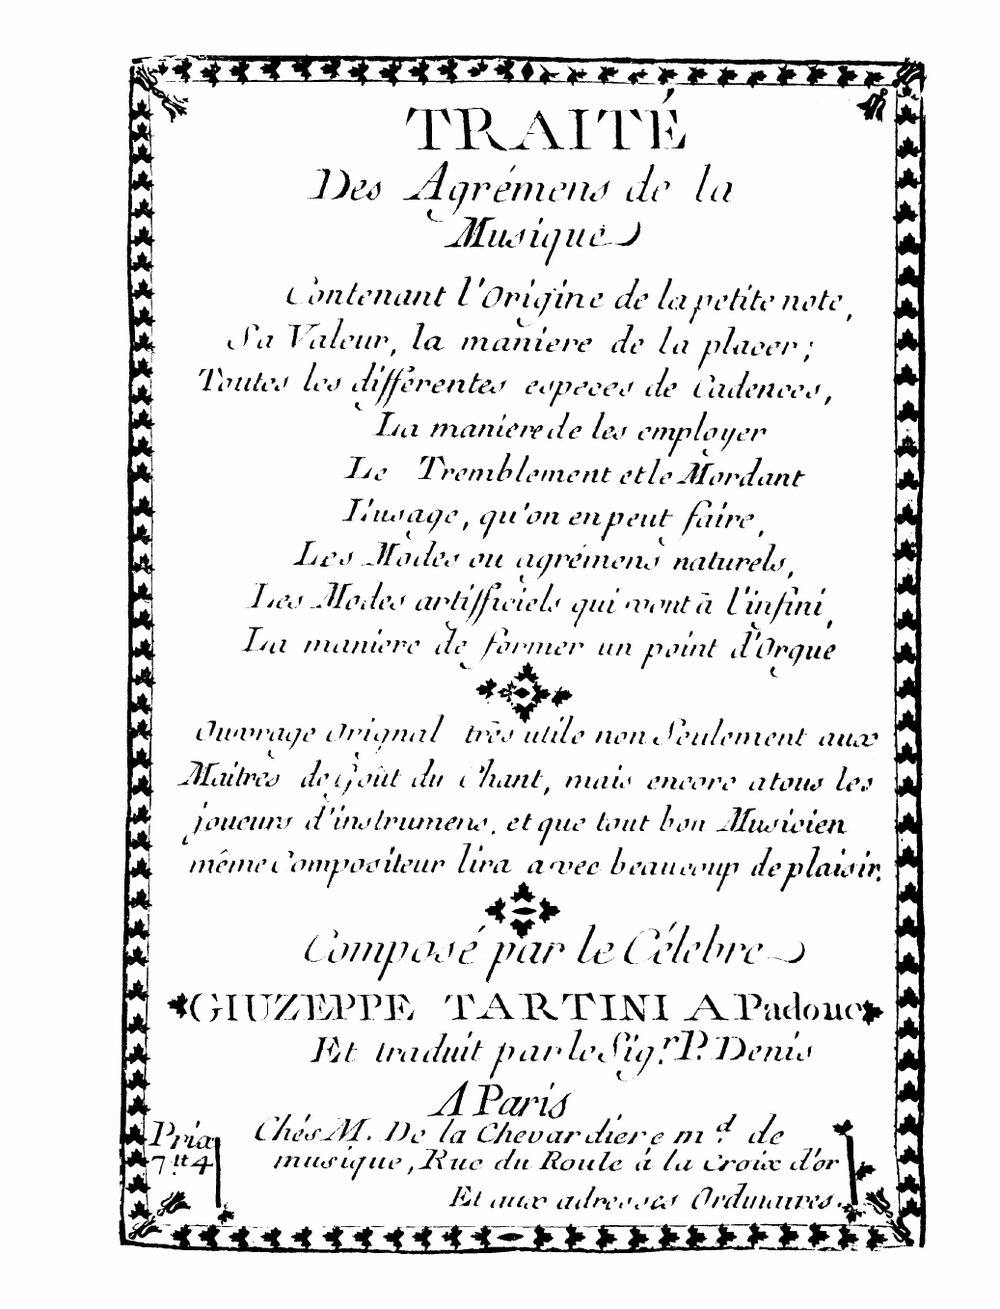 TRAITÉ
Des Agrémens de la
Musique
Contenant l'Origine de la petite note,
Sa Valeur, la maniere de la placer;
Toutes les différentes especes de Cadences,
La maniere de les employer
Le Tremblement et le Mordant
L'usage, qu'on en peut faire,
Les Modes ou agrémens naturels,
Les Modes artifficiels qui vont à l'infini,
La maniere de former un point d'Orgue
Ouvrage Orignal très utile non Seulement aux
Maitres de Goût du Chant, mais encore a tous les
joueurs d'instrumens, et que tout bon Musicien
même Compositeur lira avec beaucoup de plaisir.
Composé par le Célebre
GIUZEPPE TARTINI A Padoue
Et traduit par le Sigr. P. Denis
A Paris
Chés M. De la Chevardiere md. de
Prix
musique, Rue du Roule á la Croix d'or
7tt 4
Et aux adresses Ordinaires.